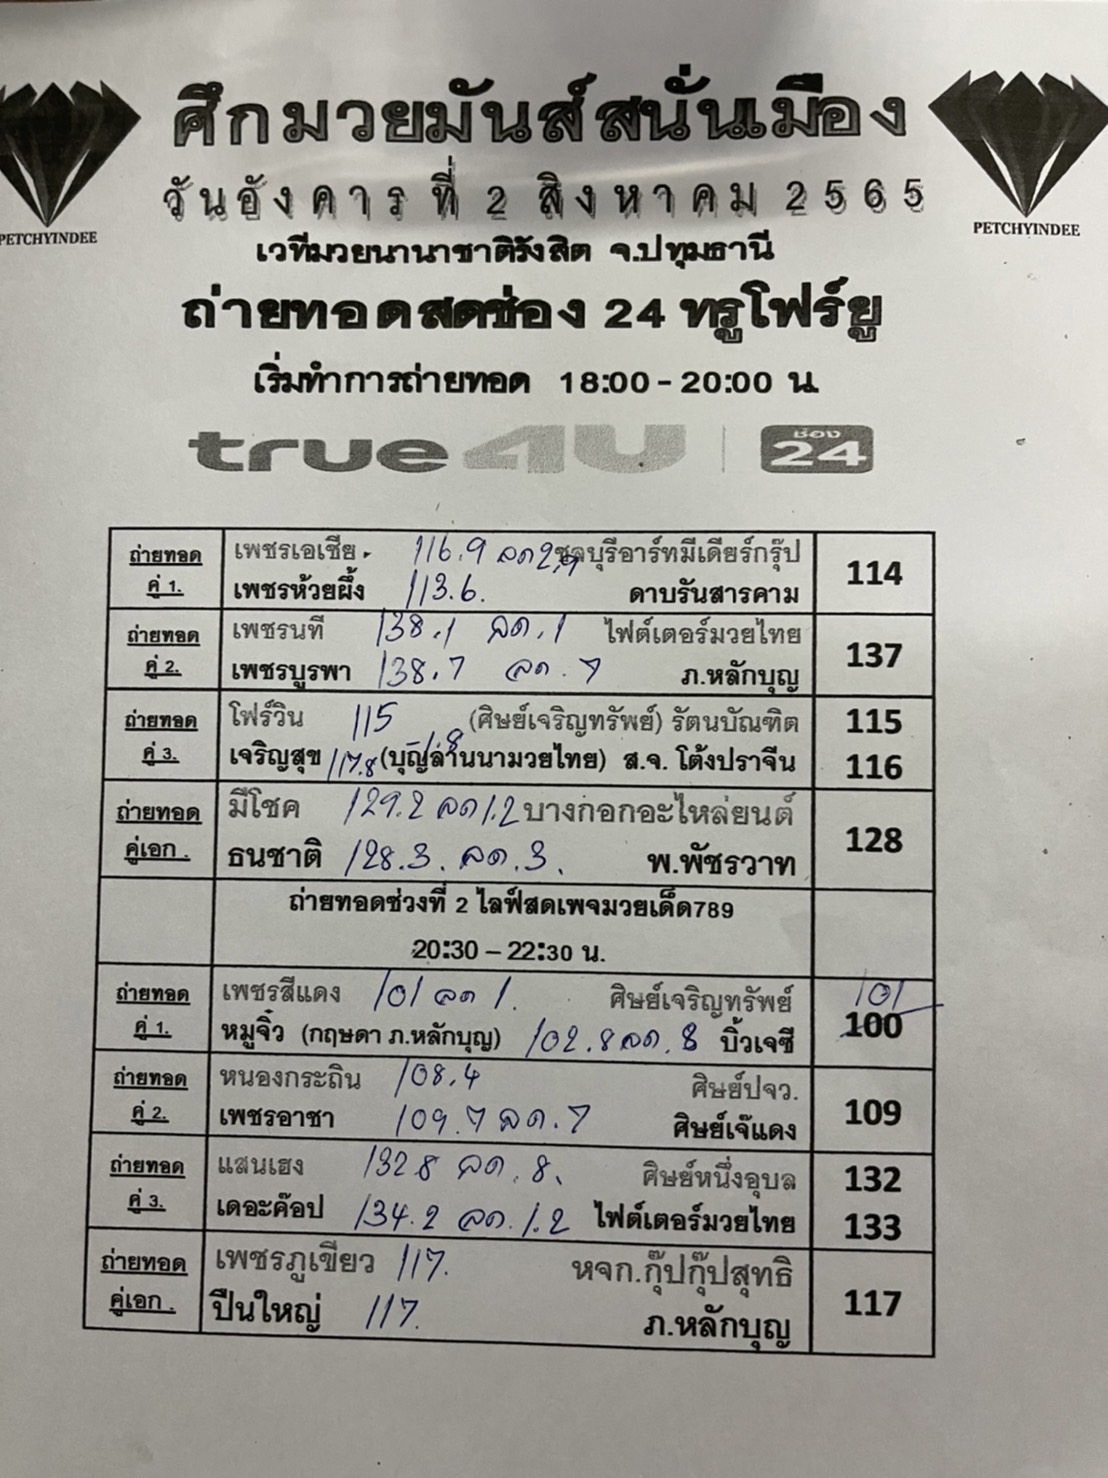 ศึกมวยมันส์สนั่นเมือง
วันอังคารที่ 2 สิงหาคม 2565
PETCHYINDEE
PETCHYINDEE
เวทีมวยนานาชาติรังสิต จ.ปทุมธานี
ถ่ายทอดสดช่อง 24 ทรูโฟร์ยู
เริ่มทำการถ่ายทอด 18:00 - 20:00 น.
true4U ช่อง 24
ถ่ายทอด คู่ 1.
เพชรเอเชีย 116.9 ลด 2.9 ชลบุรีอาร์ทมีเดียร์กรุ๊ป
เพชรห้วยผึ้ง 113.6. ดาบรันสารคาม
114
ถ่ายทอด คู่ 2.
เพชรนที 138.1 ลด.1 ไฟต์เตอร์มวยไทย
เพชรบูรพา 138.7 ลด.7 ภ.หลักบุญ
137
ถ่ายทอด คู่ 3.
โฟร์วิน 115 (ศิษย์เจริญทรัพย์) รัตนบัณฑิต 115
เจริญสุข 117.8 (บุญล้านนามวยไทย) ส.จ. โต้งปราจีน 116
ถ่ายทอด คู่เอก.
มีโชค 129.2 ลด 1.2 บางกอกอะไหล่ยนต์
ธนชาติ 128.3. ลด.3. พ.พัชรวาท
128
ถ่ายทอดช่วงที่ 2 ไลฟ์สดเพจมวยเด็ด789
20:30 – 22:30 น.
ถ่ายทอด คู่ 1.
เพชรสีแดง 101 ลด 1. ศิษย์เจริญทรัพย์ 101
หมูจิ๋ว (กฤษดา ภ.หลักบุญ) 102.8 ลด.8 บิ้วเจซี 100
ถ่ายทอด คู่ 2.
หนองกระถิน 108.4 ศิษย์ปจว.
เพชรอาชา 109.7 ลด.7 ศิษย์เจ๊แดง
109
ถ่ายทอด คู่ 3.
แสนเฮง 132.8 ลด.8. ศิษย์หนึ่งอุบล 132
เดอะค๊อป 134.2 ลด.1.2 ไฟต์เตอร์มวยไทย 133
ถ่ายทอด คู่เอก.
เพชรภูเขียว 117. หจก.กุ๊ปกุ๊ปสุทธิ
ปืนใหญ่ 117. ภ.หลักบุญ
117